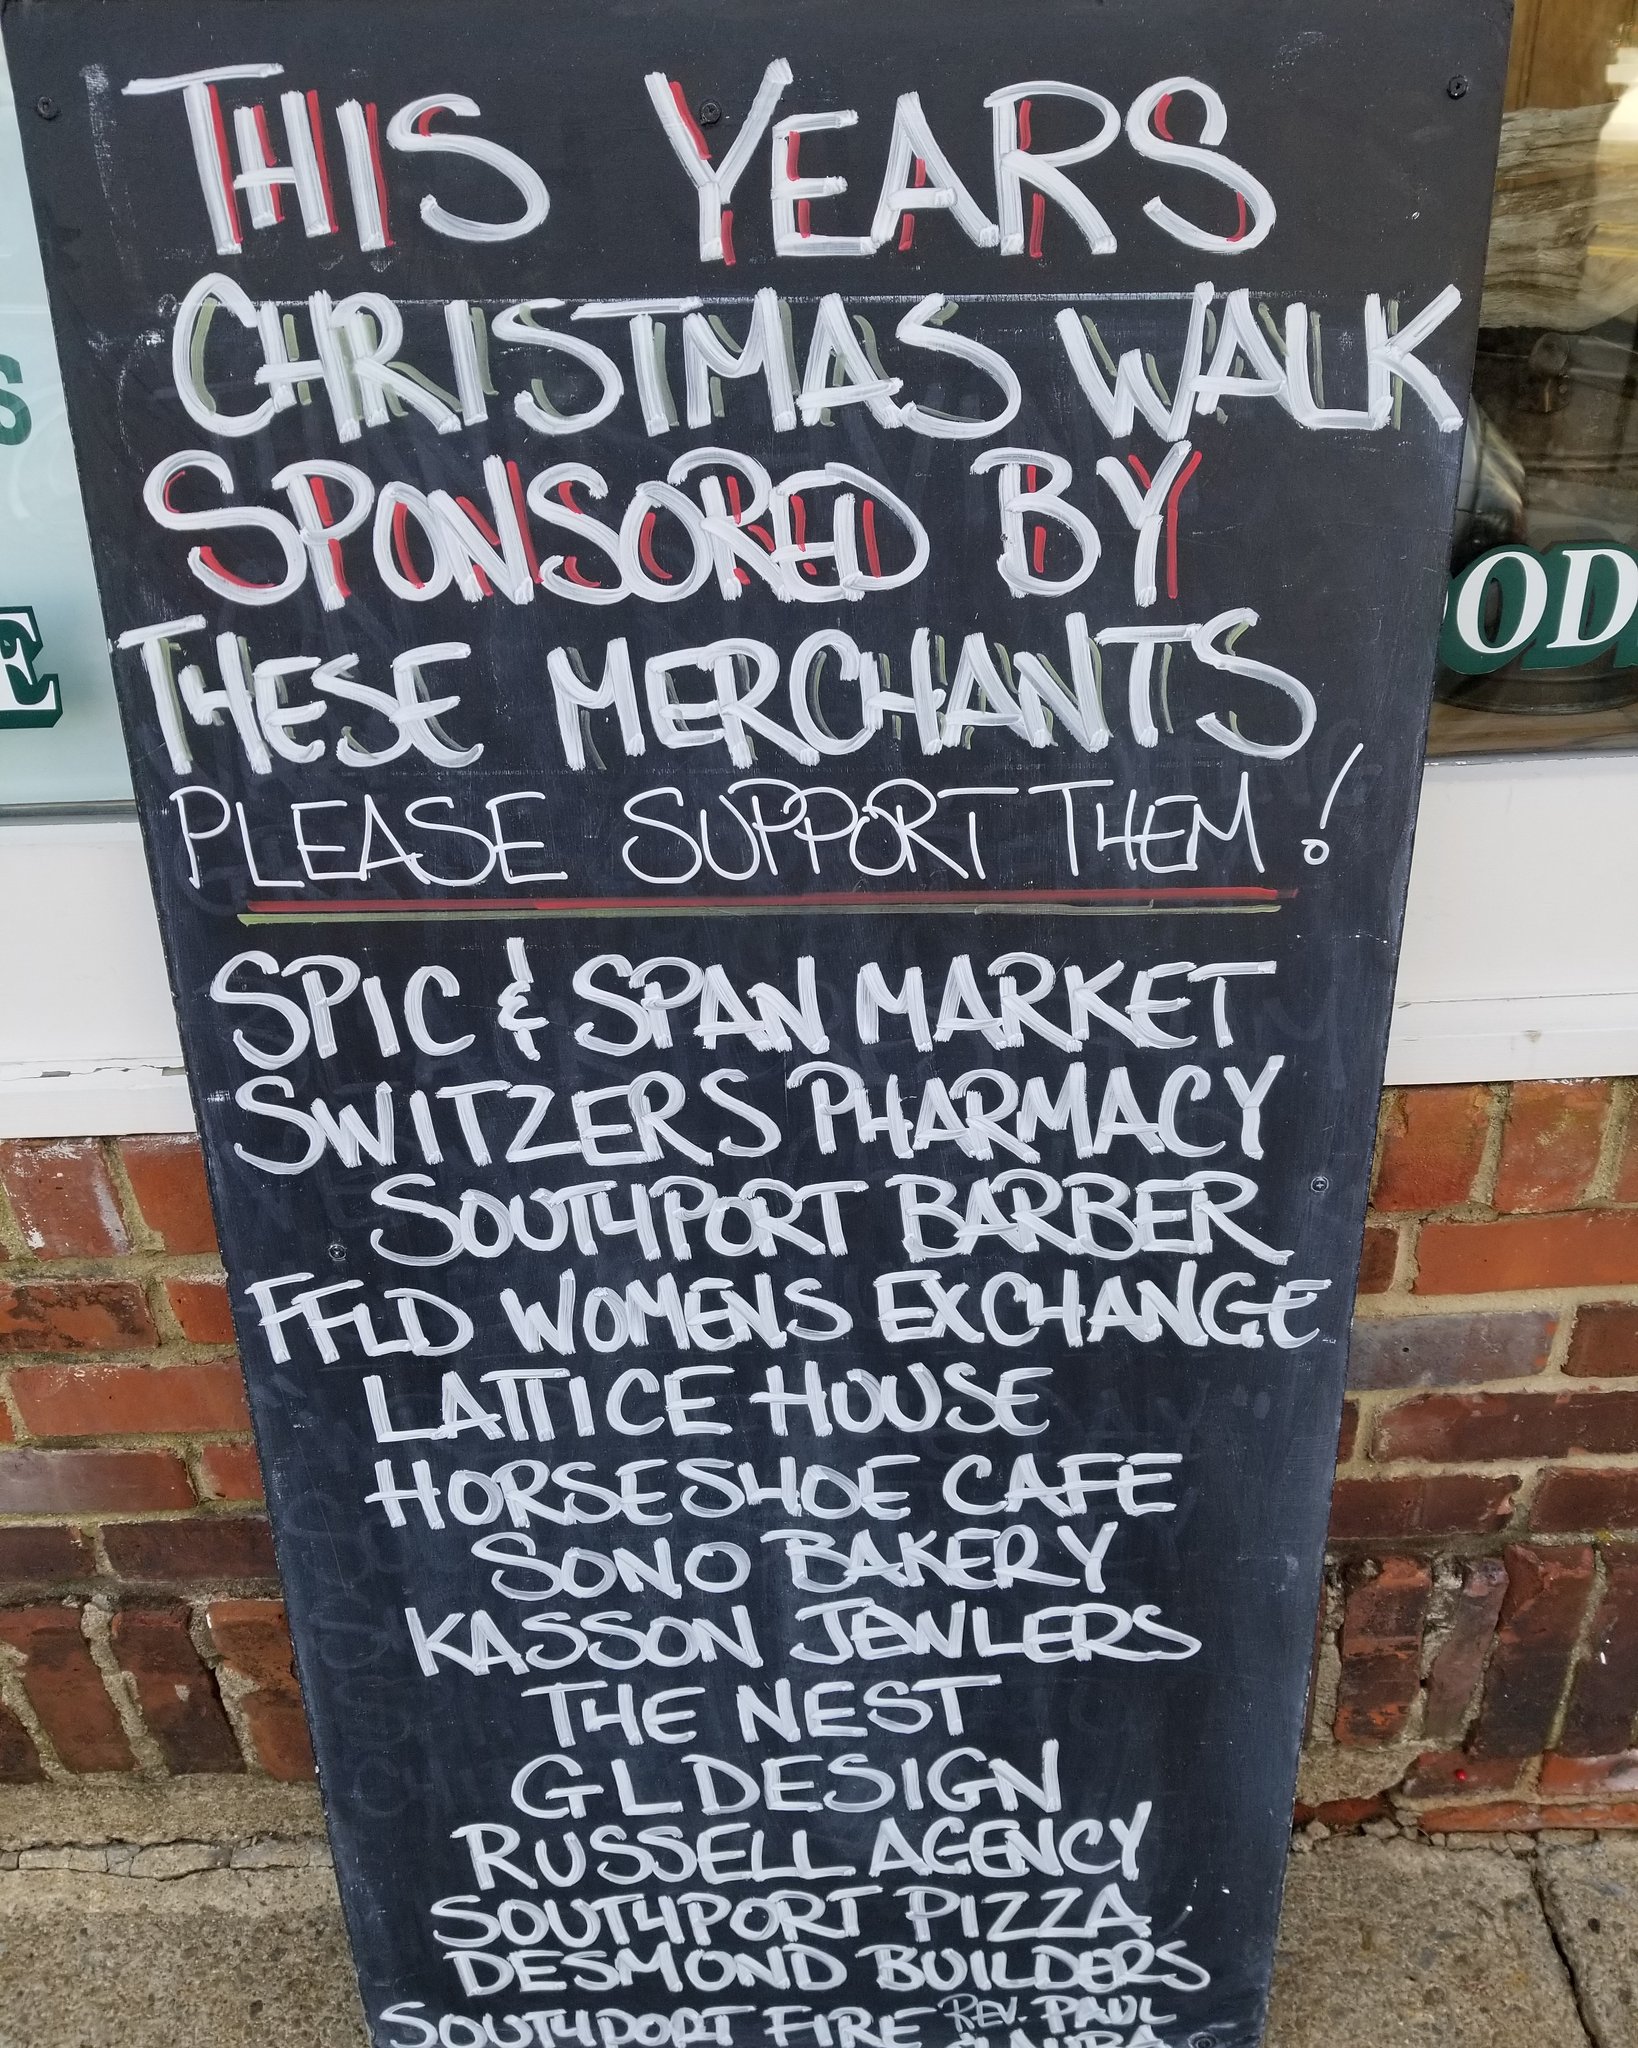 THIS YEARS
CHRISTMAS WALK
SPONSORED BY
THESE MERCHANTS
PLEASE SUPPORT THEM!
SPIC & SPAN MARKET
SWITZERS PHARMACY
SOUTHPORT BARBER
FFLD WOMENS EXCHANGE
LATTICE HOUSE
HORSESHOE CAFE
SONO BAKERY
KASSON JEWLERS
THE NEST
GL DESIGN
RUSSELL AGENCY
SOUTHPORT PIZZA
DESMOND BUILDERS
SOUTHPORT FIRE REV. PAUL
S
E
OD